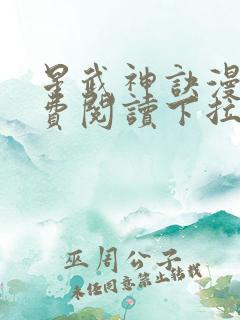 星武神訣漫
費閱讀下拉
巫周公子
未经同意禁止转载